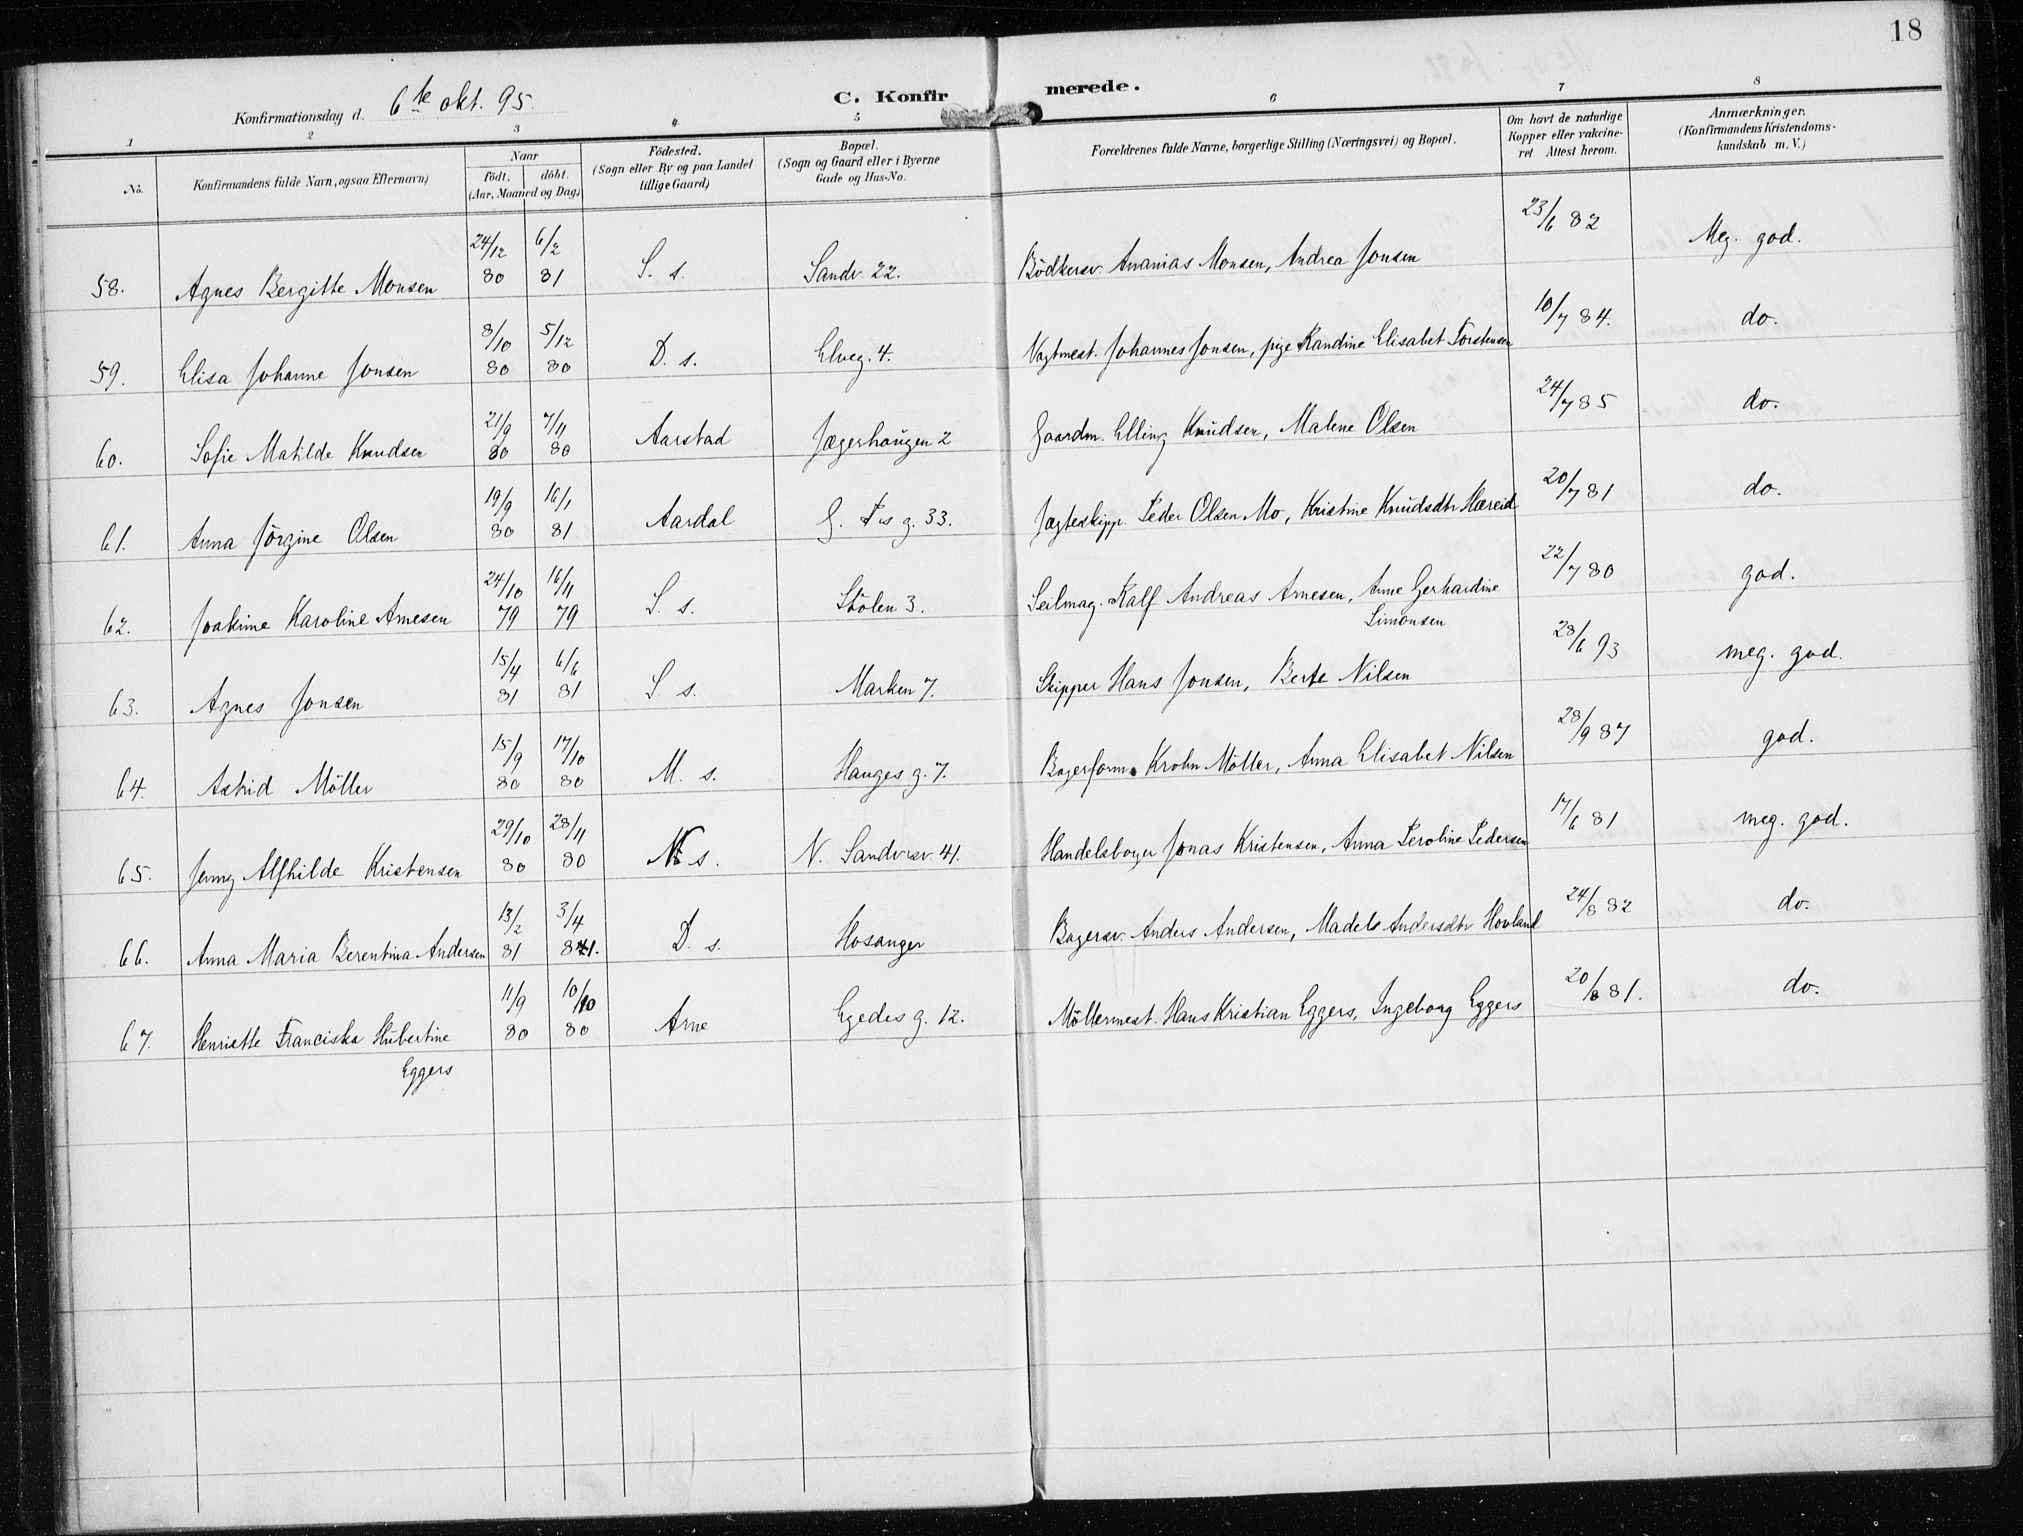 18
Konfirmationsdag d. 6te okt. 95.
C. Konfirmerede.
1 2 3 4 5 6 7 8
No. Konfirmandens fulde Navn, ogsaa Efternavn) Naar födt. döbt. (Aar, Maaned og Dag) Födested. (Sogn eller By og paa Landet tillige Gaard) Bopæl. (Sogn og Gaard eller i Byerne Gade og Hus-No. Forældrenes fulde Navne, borgerlige Stilling (Næringsvei) og Bopæl. Om havt de naturlige Kopper eller vakcineret Attest herom. Anmærkninger. (Konfirmandens Kristendomskundskab m. V.)
58. Agnes Bergitte Monsen 24/12 80 6/2 81 S. s. Sandv. 22. Bödkersv. Ananias Monsen, Andrea Jonsen 23/6 82 Meg. god.
59. Elisa Johanne Jonsen 8/10 80 5/12 80 D. s. Elveg. 4. Vagtmest. Johannes Jonsen, pige Randine Elisabet Torstensen 10/7 84. do.
60. Sofie Matilde Knudsen 21/9 80 7/11 80 Aarstad Jægerhaugen 2 Gaardm. Elling Knudsen, Malene Olsen 24/7 85 do.
61. Anna Jörgine Olsen 19/9 80 16/1 81 Aardal g. 33. Jægteskipp. Peder Olsen Mo, Kristine Knudsdtr Hæreid 20/7 81 do.
62. Joakime Karoline Arnesen 24/10 79 16/11 79 S. s. Stölen 3. Seilmag. Ralf Andreas Arnesen, Anne Gerhardine Simonsen 22/7 80 god.
63. Agnes Jonsen 15/4 81 6/6 81 S. s. Marken 7. Skipper Hans Jonsen, Berte Nilsen 28/6 93 meg. god.
64. Astrid Möller 15/9 80 17/10 80 M. s. Hauges g. 7. Bagerform. Krohn Möller, Anna Elisabet Nilsen 28/9 87 god.
65. Jenny Alfhilde Kristensen 29/10 80 28/11 80 N. s. N. Sandv.sv. 41. Handelsborger Jonas Kristensen, Anna Peroline Pedersen 17/6 81 meg. god.
66. Anna Maria Berentina Andersen 13/2 81 3/4 81. D. s. Hosanger Bagersv. Anders Andersen, Madels Andersdtr Hovland 24/8 82 do.
67. Henriette Franciska Hübertine Eggers 11/9 80 10/10 80 Arne Egedes g. 12. Möllermest. Hans Kristian Eggers, Ingeborg Eggers 20/8 81. do.